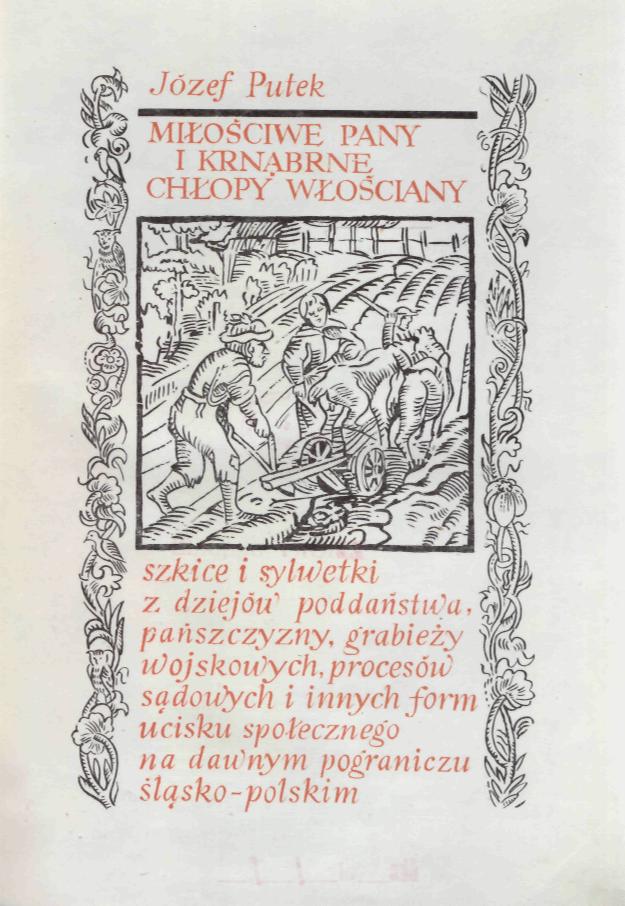 Józef Putek
MIŁOŚCIWE PANY
I KRNĄBRNE
CHŁOPY WŁOŚCIANY
szkice i sylwetki
z dziejów poddaństwa,
pańszczyzny, grabieży
wojskowych, procesów
sądowych i innych form
ucisku społecznego
na dawnym pograniczu
śląsko-polskim